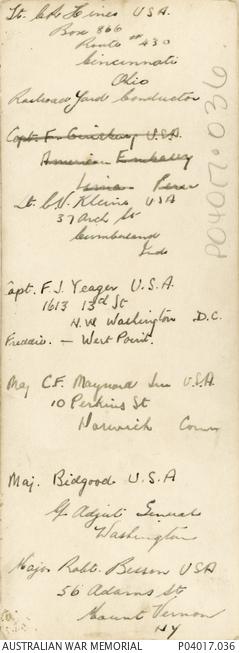 Lt. C.P. Hines U.S.A.
Box 866
Route # 430
Cincinnati
Ohio
Railroad Yard Conductor
Capt. F. U.S.A.
American Embassy
Lima Peru
Lt. C.V. Kleine USA
37 Arch St
Cumberland
Capt. F.J. Yeager U.S.A.
1613 13th St
N.W. Washington D.C.
Freddie. — West Point.
Maj C.F. Maynard Jnr U.S.A.
10 Perkins St
Norwich Conn
Maj. Bidgood U.S.A
℅ Adjut General
Washington
Major Robt. Besson USA
56 Adams St
Mount Vernon
NY
P04017.036
AUSTRALIAN WAR MEMORIAL P04017.036